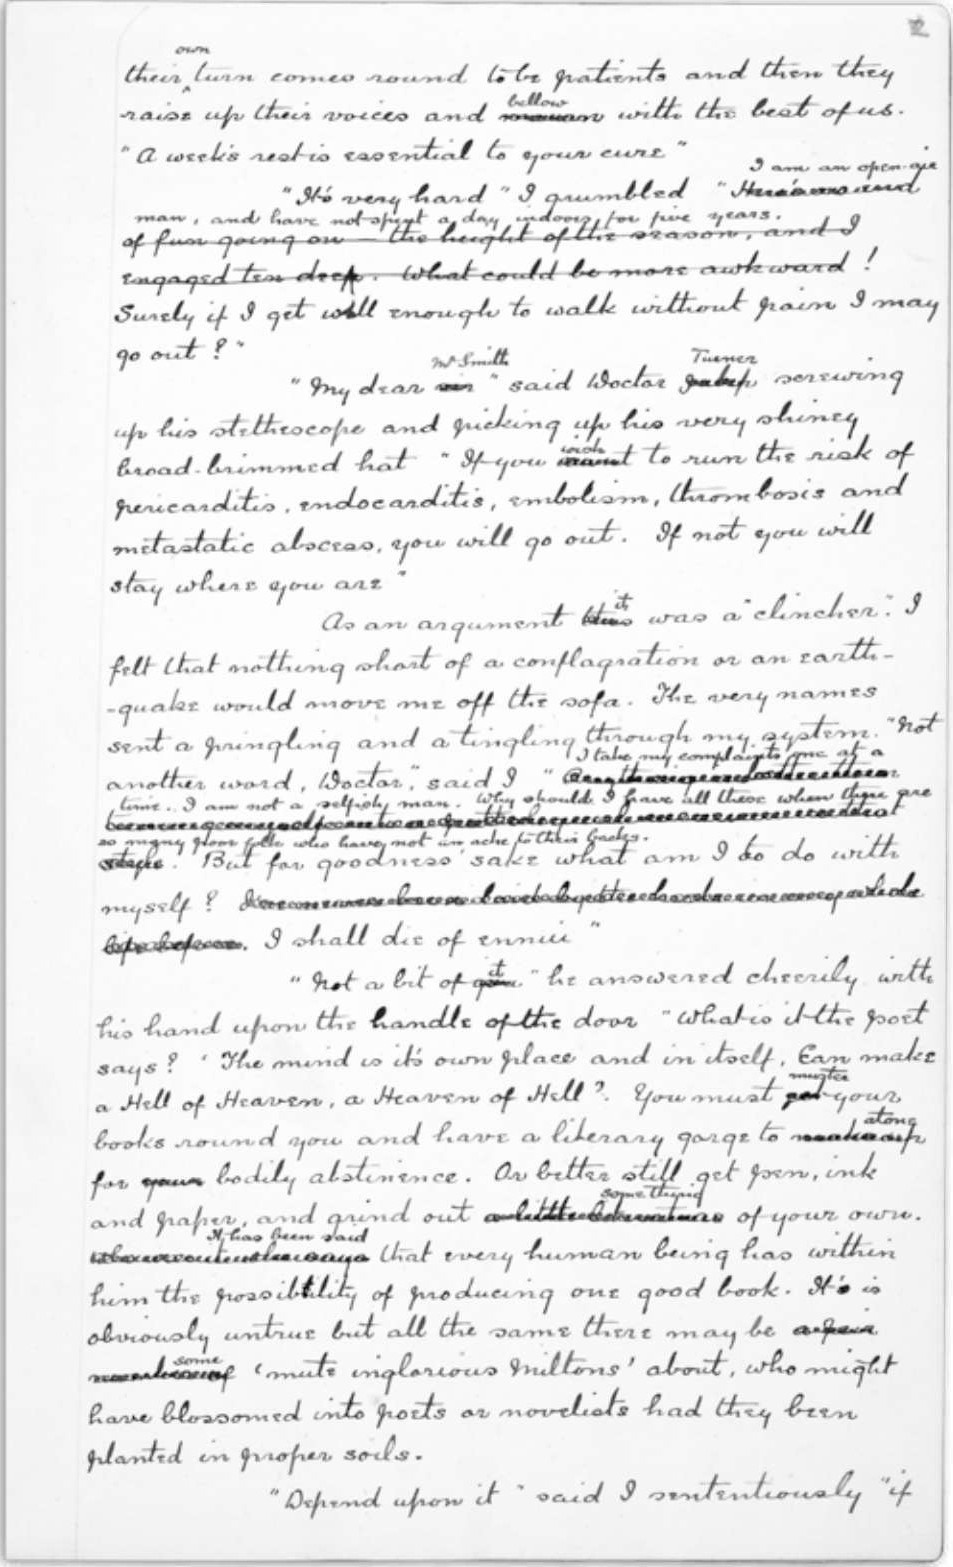 2
own
their turn comes round to be patients and then they
bellow
raise up their voices and with the best of us.
"A week's rest is essential to your cure"
I am an open-air
"It's very hard" I grumbled "Here's no end
man, and have not spent a day indoors for five years.
of fun going on — the height of the season, and I
engaged ten deep. What could be more awkward!
Surely if I get well enough to walk without pain I may
go out?"
Mr Smith Turner
"My dear sir" said Doctor screwing
up his stethescope and picking up his very shiney
broad-brimmed hat "If you
wish
want to run the risk of
pericarditis, endocarditis, embolism, thrombosis and
metastatic abscess, you will go out. If not you will
stay where you are"
it
As an argument this was a "clincher". I
felt that nothing short of a conflagration or an earth-
-quake would move me off the sofa. The very names
sent a pringling and a tingling through my system. "Not
I take my complaints one at a
another word, Doctor", said I "
time. I am not a selfish man. Why should I have all these when there are
so many poor folk who have not an ache to their backs.
steps. But for goodness' sake what am I to do with
myself?
life before. I shall die of ennui"
it
"Not a bit of you" he answered cheerily with
his hand upon the handle of the door "What is it the poet
says? 'The mind is it's own place and in itself, Can make
a Hell of Heaven, a Heaven of Hell'. You must
muster
get your
atone
books round you and have a literary gorge to make up
for your bodily abstinence. Or better still get pen, ink
something
and paper, and grind out a little literature of your own.
It has been said
that every human being has within
him the possibility of producing one good book. It's is
obviously untrue but all the same there may be
some
'mute inglorious Miltons' about, who might
have blossomed into poets or novelists had they been
planted in proper soils.
"Depend upon it" said I sententiously "if